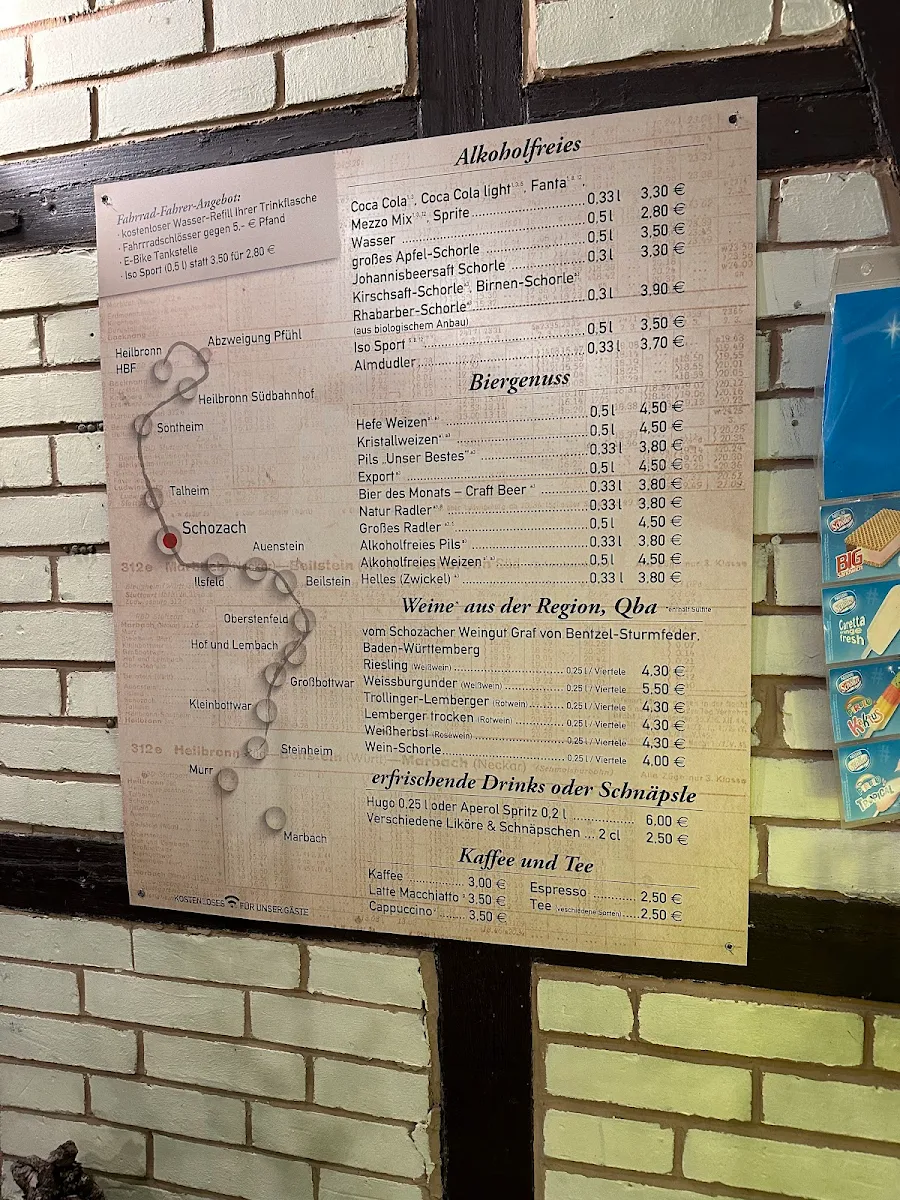 Fahrrad-Fahrer-Angebot:
· kostenloser Wasser-Refill Ihrer Trinkflasche
· Fahrrradschlösser gegen 5.- € Pfand
· E-Bike Tankstelle
· Iso Sport (0.5 l) statt 3.50 für 2.80 €
Alkoholfreies
Coca Cola, Coca Cola light, Fanta
Mezzo Mix, Sprite 0,33 l 3.30 €
Wasser 0.5 l 2.80 €
großes Apfel-Schorle 0.5 l 3.50 €
Johannisbeersaft Schorle 0.3 l 3.30 €
Kirschsaft-Schorle, Birnen-Schorle
Rhabarber-Schorle 0.3 l 3.90 €
(aus biologischem Anbau)
Iso Sport 0.5 l 3.50 €
Almdudler 0.33 l 3.70 €
Biergenuss
Hefe Weizen 0.5 l 4,50 €
Kristallweizen 0.5 l 4,50 €
Pils „Unser Bestes" 0.33 l 3,80 €
Export 0.5 l 4.50 €
Bier des Monats – Craft Beer 0.33 l 3.80 €
Natur Radler 0.33 l 3.80 €
Großes Radler 0.5 l 4.50 €
Alkoholfreies Pils 0.33 l 3.80 €
Alkoholfreies Weizen 0.5 l 4.50 €
Helles (Zwickel) 0.33 l 3.80 €
Weine* aus der Region, Qba *enthält Sulfite
vom Schozacher Weingut Graf von Bentzel-Sturmfeder.
Baden-Württemberg
Riesling (Weißwein) 0.25 l / Viertele 4.30 €
Weissburgunder (Weißwein) 0.25 l / Viertele 5.50 €
Trollinger-Lemberger (Rotwein) 0.25 l / Viertele 4.30 €
Lemberger trocken (Rotwein) 0.25 l / Viertele 4.30 €
Weißherbst (Rosewein) 0.25 l / Viertele 4.30 €
Wein-Schorle 0.25 l / Viertele 4.00 €
erfrischende Drinks oder Schnäpsle
Hugo 0,25 l oder Aperol Spritz 0,2 l 6,00 €
Verschiedene Liköre & Schnäpschen ... 2 cl 2.50 €
Kaffee und Tee
Kaffee 3,00 €
Latte Macchiato 3.50 €
Cappuccino 3.50 €
Espresso 2.50 €
Tee (verschiedene Sorten) 2.50 €
Heilbronn
HBF
Abzweigung Pfühl
Heilbronn Südbahnhof
Sontheim
Talheim
Schozach
Auenstein
Ilsfeld
Beilstein
Oberstenfeld
Hof und Lembach
Großbottwar
Kleinbottwar
Steinheim
Murr
Marbach
KOSTENLOSES FÜR UNSERE GÄSTE
BIG
SANDWICH